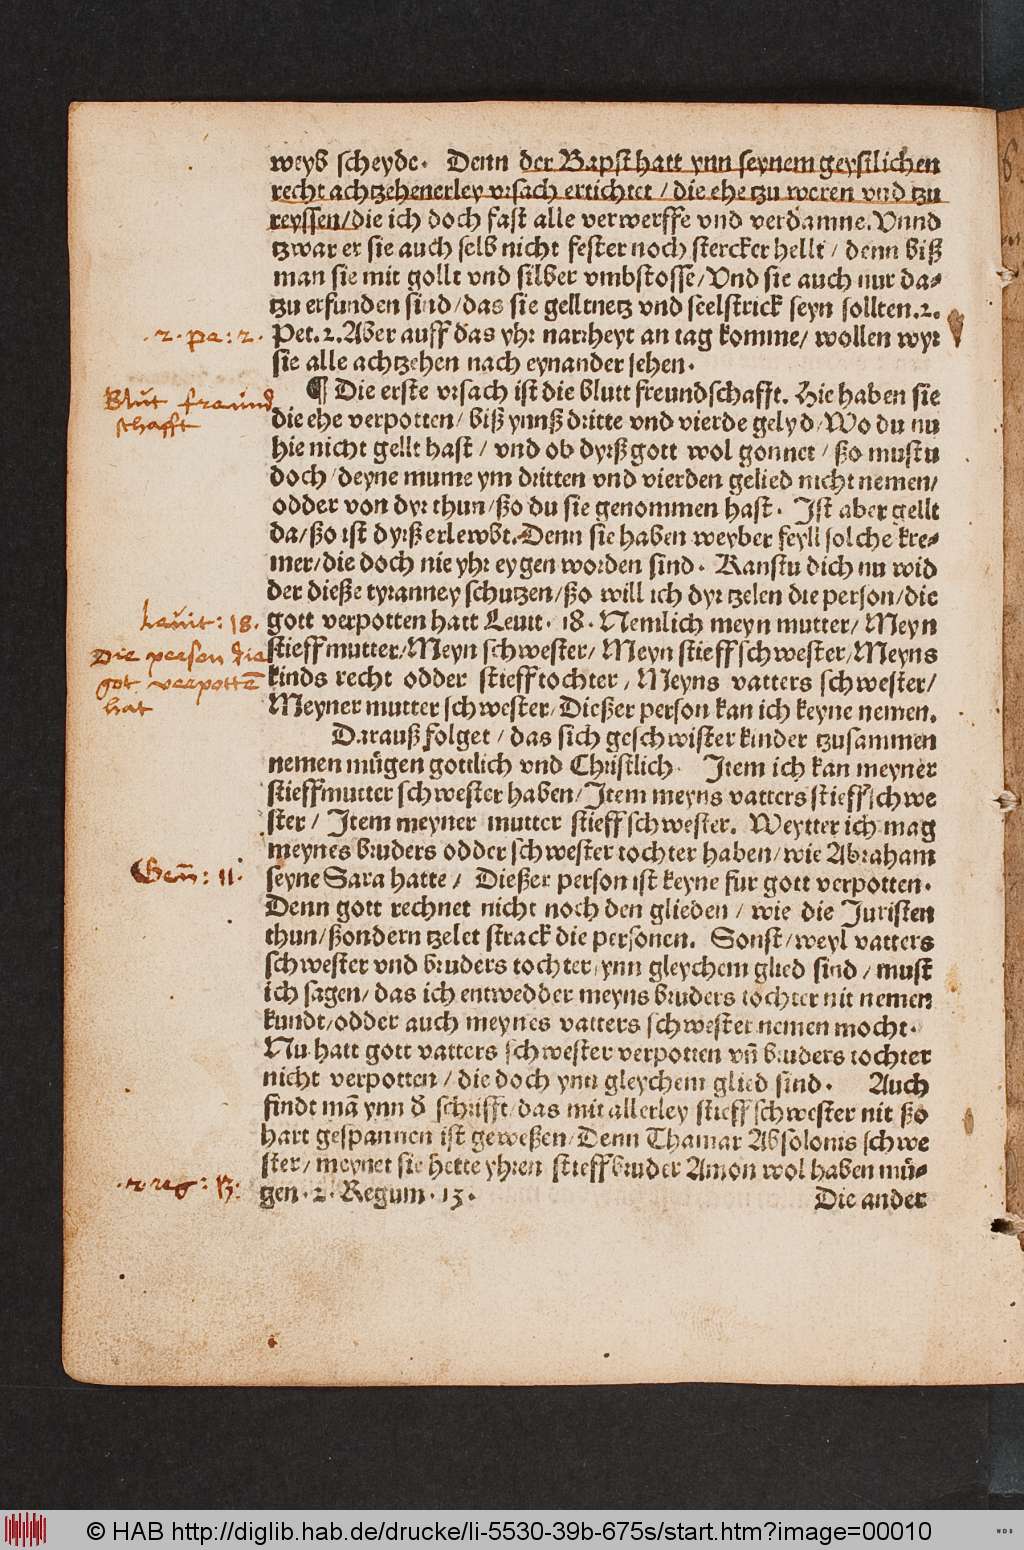 weyb scheyde. Denn der Bapst hatt ynn seynem geystlichen
recht achtzehenerley vrsach ertichtet / die ehe tzu weren vnd tzu
reyssen/die ich doch fast alle verwerffe vnd verdamne.Vnnd
tzwar er sie auch selb nicht fester noch stercker hellt / denn biß
man sie mit gollt vnd silber vmbstosse/Vnd sie auch nur da-
tzu erfunden sind/das sie gelltnetz vnd seelstrick seyn sollten.2.
.2.pe:2.
Pet.2.Aber auff das yhr narrheyt an tag komme/ wollen wyr
sie alle achtzehen nach eynander sehen.
Blut freund
schafft
¶ Die erste vrsach ist die blutt freundschafft. Hie haben sie
die ehe verpotten/ biß ynnß dritte vnd vierde gelyd/Wo du nu
hie nicht gellt hast / vnd ob dyrß gott wol gonnet / ßo mustu
doch/deyne mume ym dritten vnd vierden gelied nicht nemen/
odder von dyr thun/ßo du sie genommen hast. Ist aber gellt
da/ßo ist dyrß erlewbt.Denn sie haben weyber feyll solche kre-
mer/die doch nie yhr eygen worden sind. Kanstu dich nu wid
der dieße tyranney schutzen/ßo will ich dyr tzelen die person/die
Leuit: 18.
gott verpotten hatt Leuit. 18. Nemlich meyn mutter/ Meyn
Die person die
got verpottē
hat
stieffmutter/Meyn schwester/ Meyn stieffschwester/Meyns
kinds recht odder stiefftochter / Meyns vatters schwester/
Meyner mutter schwester/Dießer person kan ich keyne nemen.
Darauß folget / das sich geschwister kinder tzusammen
nemen mügen gottlich vnd Christlich. Item ich kan meyner
stieffmutter schwester haben/Item meyns vatters stieffschwe
ster / Item meyner mutter stieffschwester. Weytter ich mag
meynes bruders odder schwester tochter haben/wie Abraham
Geñ: 11.
seyne Sara hatte / Dießer person ist keyne fur gott verpotten.
Denn gott rechnet nicht noch den glieden / wie die Juristen
thun/ßondern tzelet strack die personen. Sonst/weyl vatters
schwester vnd bruders tochter/ynn gleychem glied sind / must
ich sagen/das ich entwedder meyns bruders tochter nit nemen
kundt/odder auch meynes vatters schwester nemen mocht.
Nu hatt gott vatters schwester verpotten vñ bruders tochter
nicht verpotten / die doch ynn gleychem glied sind. Auch
findt mā ynn d̄ schrifft/das mit allerley stieffschwester nit ßo
hart gespannen ist geweßen/Denn Thamar Absolonis schwe
ster/ meynet sie hette yhren stieffbruder Amon wol haben mü-
.2 reg: 13.
gen.2.Regum.13.
Die ander
© HAB http://diglib.hab.de/drucke/li-5530-39b-675s/start.htm?image=00010